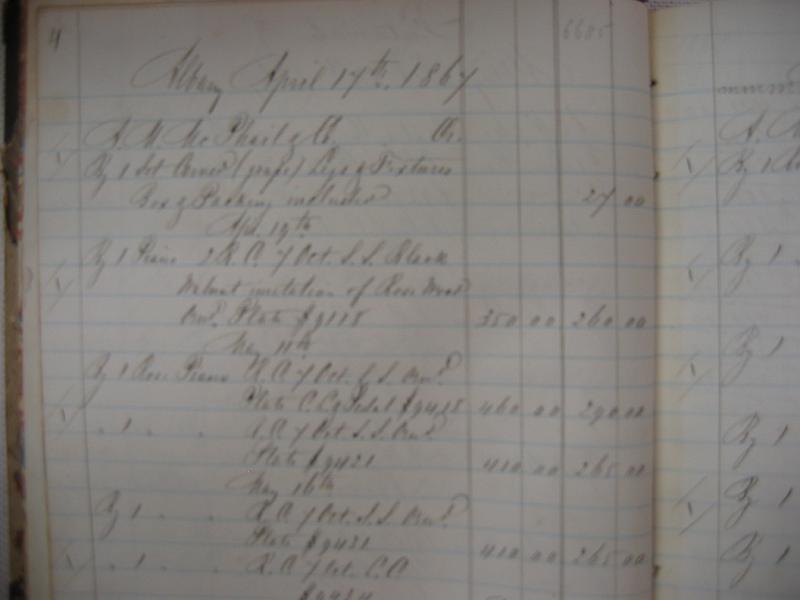 4
6685
Albany April 17th. 1867
A. M. McPhail & Co. Cr.
By 1 Set Carved (grape) Legs & Fixtures
Box & Packing included 27 00
Apr. 19th
By 1 Piano 2 R.C. 7 Oct. S.S. Black
Walnut imitation of Rose Wood
Plate $9118 350 00 260 00
May 11th
By 1 Rose Piano R.C. 7 Oct. S.S.
Plate & Pedal 460 00 290 00
" 1 " " R.C. 7 Oct. S.S.
Plate $9421 410 00 265 00
May 16th
By 1 " " R.C. 7 Oct. S.S.
Plate $9431 410 00 265 00
" 1 " R.C. 7 Oct. C.C.
By 1
By 1
By 1
By 1
By 1
By 1